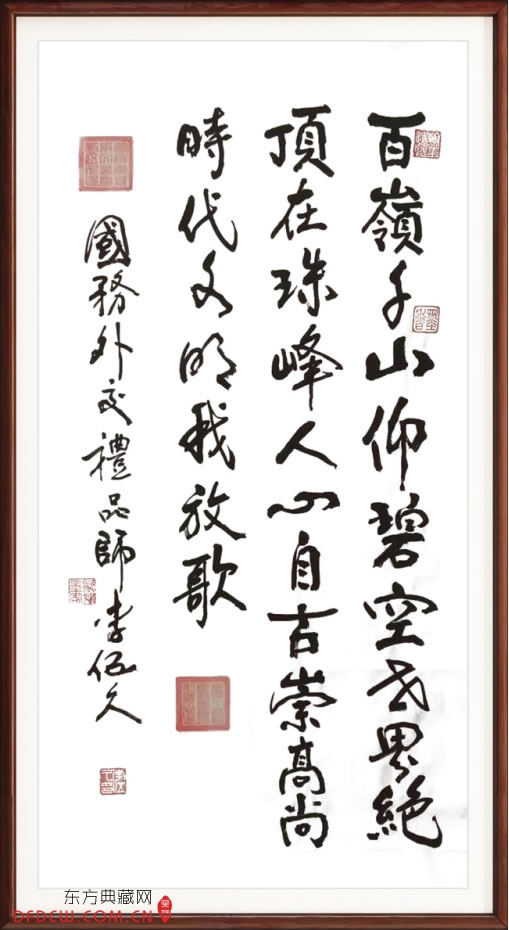 百嶺千山仰碧空世界絶
頂在珠峰人心自古崇高尚
時代文明我放歌
國務外交禮品師李伍久
东方典藏网
DFDCW.COM.CN